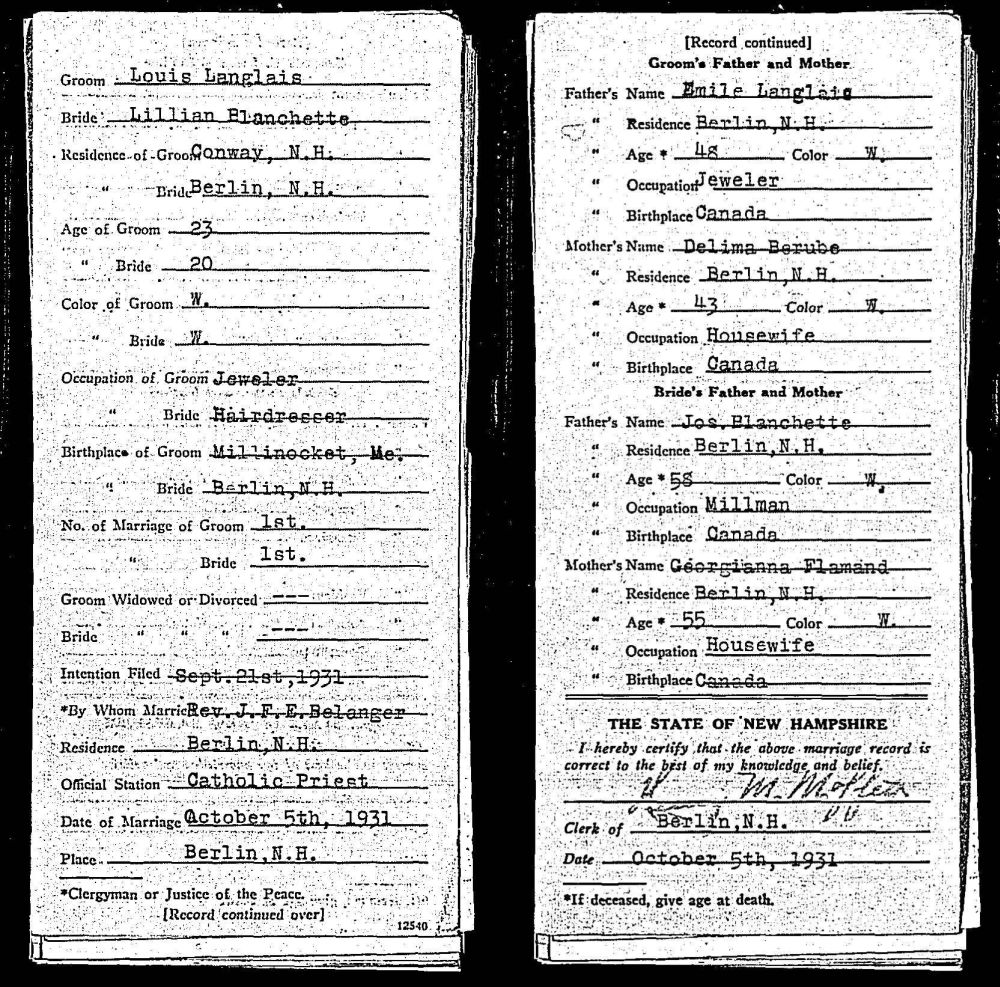 Groom Louis Langlais
Bride Lillian Blanchette
Residence of Groom Conway, N.H.
" Bride Berlin, N.H.
Age of Groom 23
" Bride 20
Color of Groom W.
" Bride W.
Occupation of Groom Jeweler
" Bride Hairdresser
Birthplace of Groom Millinocket, Me.
" Bride Berlin,N.H.
No. of Marriage of Groom 1st.
" Bride 1st.
Groom Widowed or Divorced ---
Bride " " " ---
Intention Filed Sept.21st,1931
*By Whom Married Rev.J.F.E.Belanger
Residence Berlin,N.H.
Official Station Catholic Priest
Date of Marriage October 5th, 1931
Place Berlin,N.H.
*Clergyman or Justice of the Peace.
[Record continued over]
12540
[Record continued]
Groom's Father and Mother
Father's Name Emile Langlais
" Residence Berlin,N.H.
" Age * 48 Color W.
" Occupation Jeweler
" Birthplace Canada
Mother's Name Delima Berube
" Residence Berlin,N.H.
" Age * 43 Color W.
" Occupation Housewife
" Birthplace Canada
Bride's Father and Mother
Father's Name Jos.Blanchette
" Residence Berlin,N.H.
" Age * 58 Color W.
" Occupation Millman
" Birthplace Canada
Mother's Name Georgianna Flamand
" Residence Berlin,N.H.
" Age * 55 Color W.
" Occupation Housewife
" Birthplace Canada
THE STATE OF NEW HAMPSHIRE
I hereby certify that the above marriage record is
correct to the best of my knowledge and belief.
Clerk of Berlin,N.H.
Date October 5th, 1931
*If deceased, give age at death.